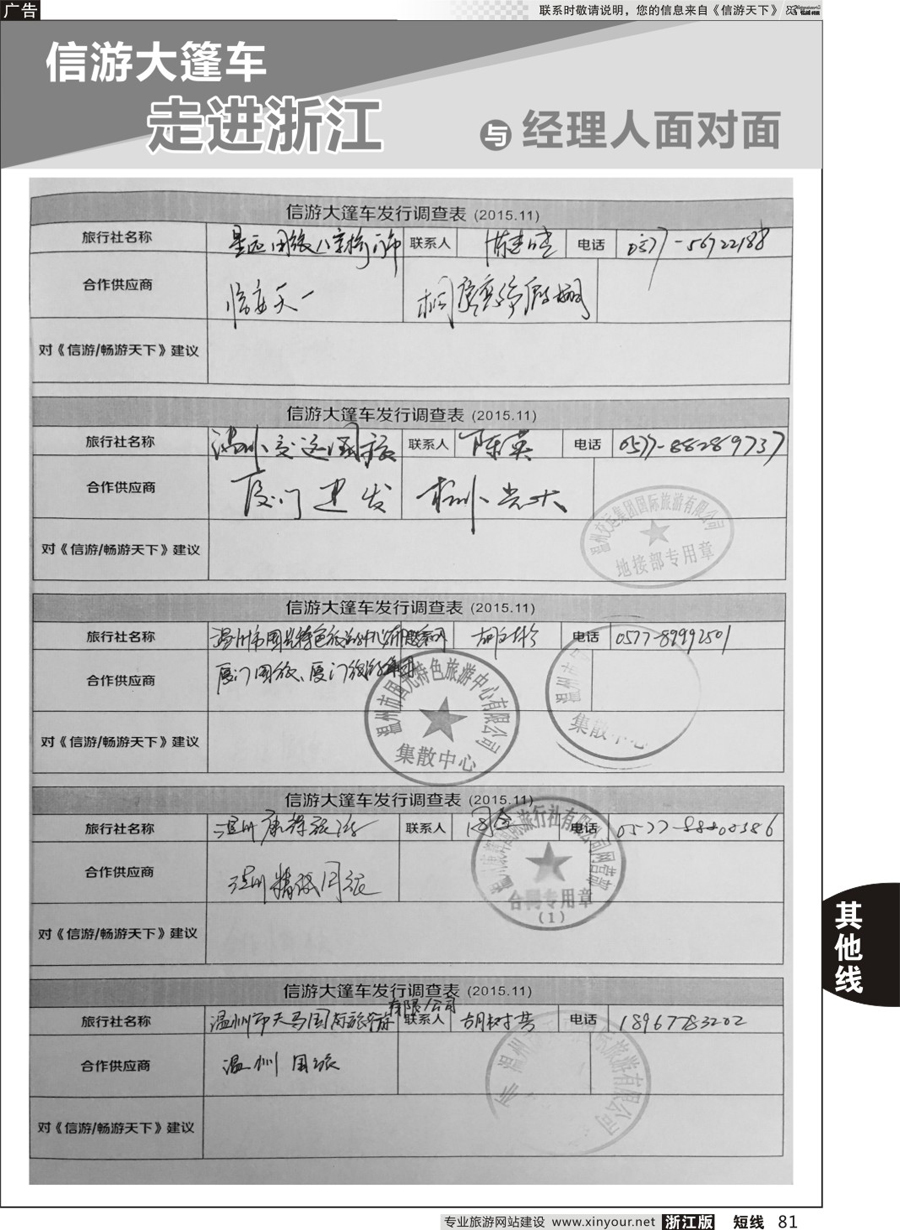 广告
联系时敬请说明，您的信息来自《信游天下》
信游大篷车
走进浙江
与 经理人面对面
信游大篷车发行调查表 (2015.11)
旅行社名称 联系人 电话
合作供应商 临安天一
对《信游/畅游天下》建议
信游大篷车发行调查表 (2015.11)
旅行社名称 温州交运国旅 联系人 陈英 电话 0577-88289737
合作供应商 厦门建发 杭州光大
温州交运集团国际旅游有限公司
地接部专用章
对《信游/畅游天下》建议
信游大篷车发行调查表 (2015.11)
旅行社名称 温州市国光特色旅游中心有限公司 电话 0577-89992501
合作供应商 厦门国旅、厦门旅游集团
温州市国光特色旅游中心有限公司
集散中心
集散中心
对《信游/畅游天下》建议
信游大篷车发行调查表 (2015.11)
旅行社名称 温州康辉旅游 联系人 电话
合作供应商 温州精诚国旅
旅行社有限公司
合同专用章
(1)
对《信游/畅游天下》建议
信游大篷车发行调查表 (2015.11)
旅行社名称 温州市天马国内旅行社有限公司 联系人 胡树芸 电话 18967783202
合作供应商 温州国旅
对《信游/畅游天下》建议
其他线
专业旅游网站建设 www.xinyour.net 浙江版 短线 81